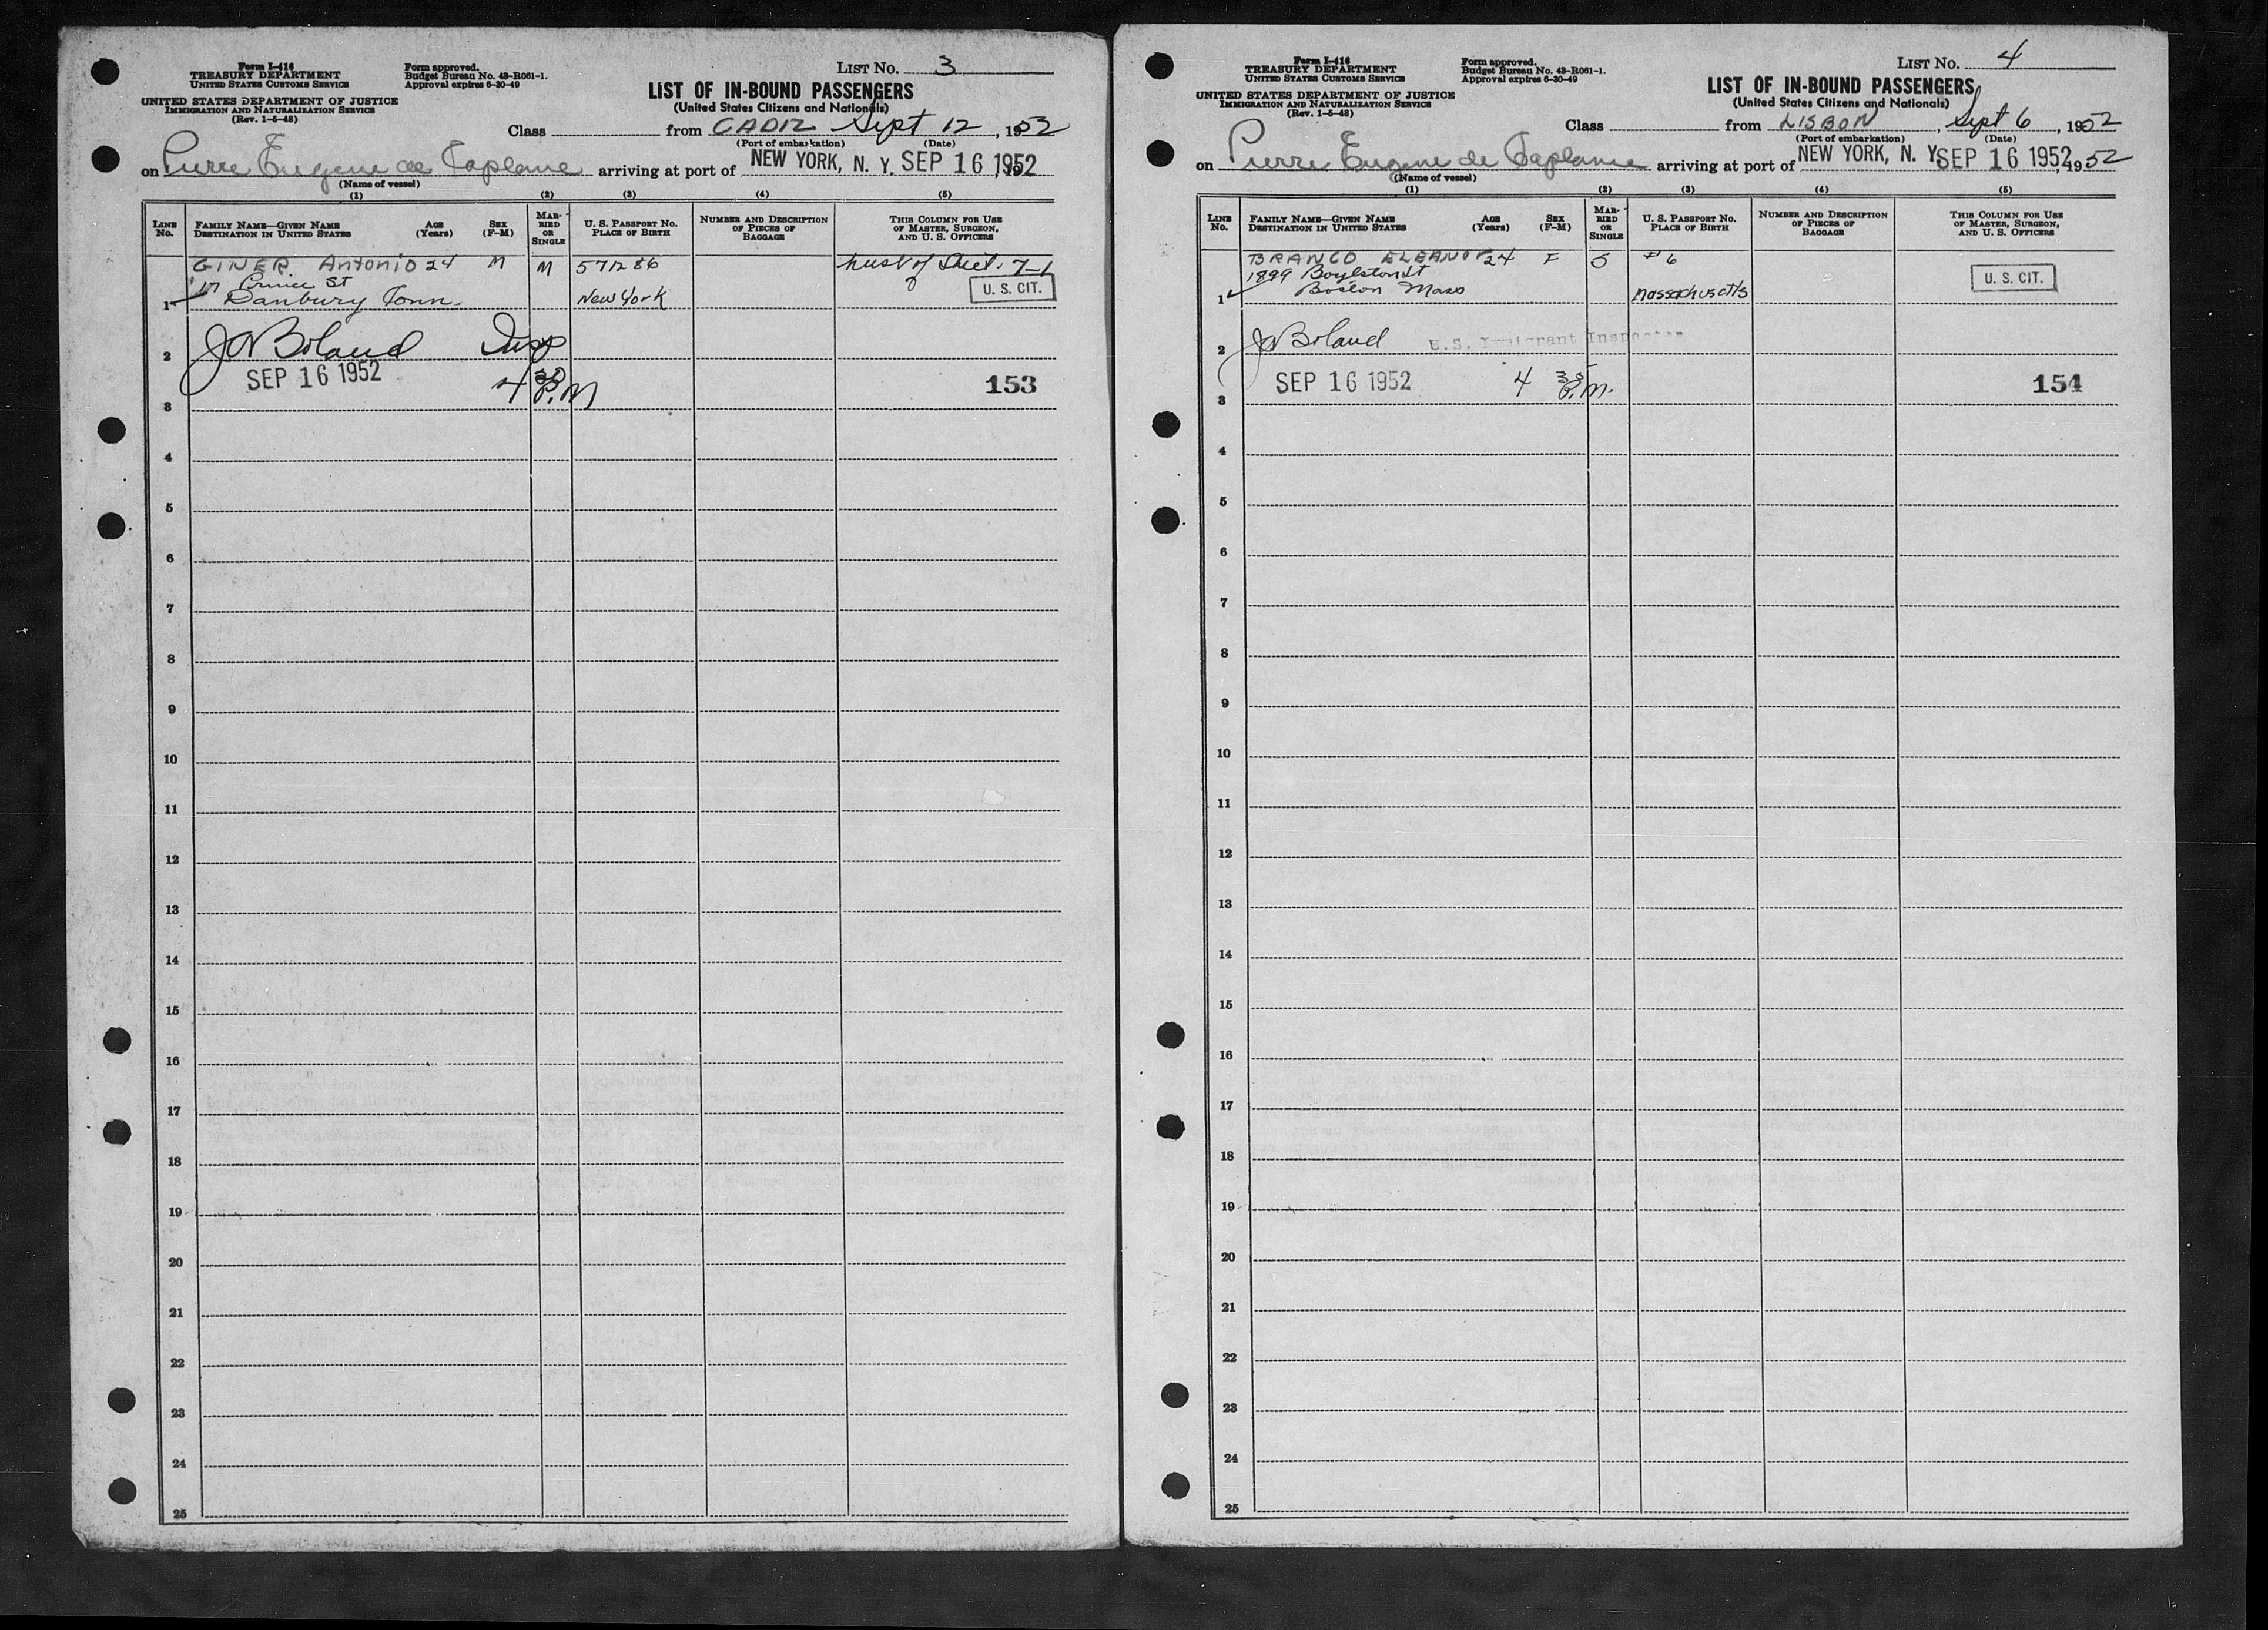 Form I-416
TREASURY DEPARTMENT
UNITED STATES CUSTOMS SERVICE
UNITED STATES DEPARTMENT OF JUSTICE
IMMIGRATION AND NATURALIZATION SERVICE
(Rev. 1-5-48)
Form approved.
Budget Bureau No. 43-R061-1.
Approval expires 6-30-49
LIST No. 3
LIST OF IN-BOUND PASSENGERS
(United States Citizens and Nationals)
Class from CADIZ Sept 12, 1952
(Port of embarkation) (Date)
on Pierre Eugene de arriving at port of NEW YORK, N. Y. SEP 16 1952
(Name of vessel)
(1) (2) (3) (4) (5)
LINE No. FAMILY NAME—GIVEN NAME DESTINATION IN UNITED STATES AGE (Years) SEX (F-M) MARRIED OR SINGLE U. S. PASSPORT No. PLACE OF BIRTH NUMBER AND DESCRIPTION OF PIECES OF BAGGAGE THIS COLUMN FOR USE OF MASTER, SURGEON, AND U. S. OFFICERS
GINER Antonio 24 M M 571286 husb of Sheet 7-1
17 Prince St
1 Danbury Conn. New York U. S. CIT.
2 J A Boland Insp
SEP 16 1952 4 30 P.M 153
3
4
5
6
7
8
9
10
11
12
13
14
15
16
17
18
19
20
21
22
23
24
25
Form I-416
TREASURY DEPARTMENT
UNITED STATES CUSTOMS SERVICE
UNITED STATES DEPARTMENT OF JUSTICE
IMMIGRATION AND NATURALIZATION SERVICE
(Rev. 1-5-48)
Form approved.
Budget Bureau No. 43-R061-1.
Approval expires 6-30-49
LIST No. 4
LIST OF IN-BOUND PASSENGERS
(United States Citizens and Nationals)
Class from LISBON, Sept 6, 1952
(Port of embarkation) (Date)
on Pierre Eugene de arriving at port of NEW YORK, N. Y. SEP 16 1952, 1952
(Name of vessel)
(1) (2) (3) (4) (5)
LINE No. FAMILY NAME—GIVEN NAME DESTINATION IN UNITED STATES AGE (Years) SEX (F-M) MARRIED OR SINGLE U. S. PASSPORT No. PLACE OF BIRTH NUMBER AND DESCRIPTION OF PIECES OF BAGGAGE THIS COLUMN FOR USE OF MASTER, SURGEON, AND U. S. OFFICERS
BRANCO ELEANOR 24 F S #6
1899 Boylston St U. S. CIT.
1 Boston Mass Massachusetts
2 J A Boland U.S. Immigrant Inspector
SEP 16 1952 4 35 P.M. 154
3
4
5
6
7
8
9
10
11
12
13
14
15
16
17
18
19
20
21
22
23
24
25